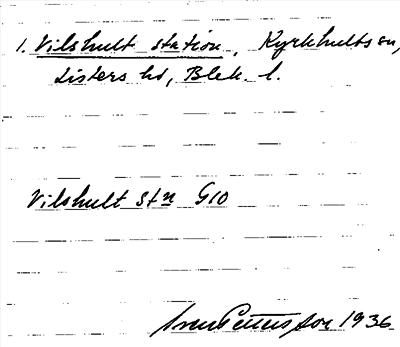 1. Vilshult station, Kyrkhults sn,
Listers hd, Blek. l.
Vilshult stn G10
Sven Petersson 1936